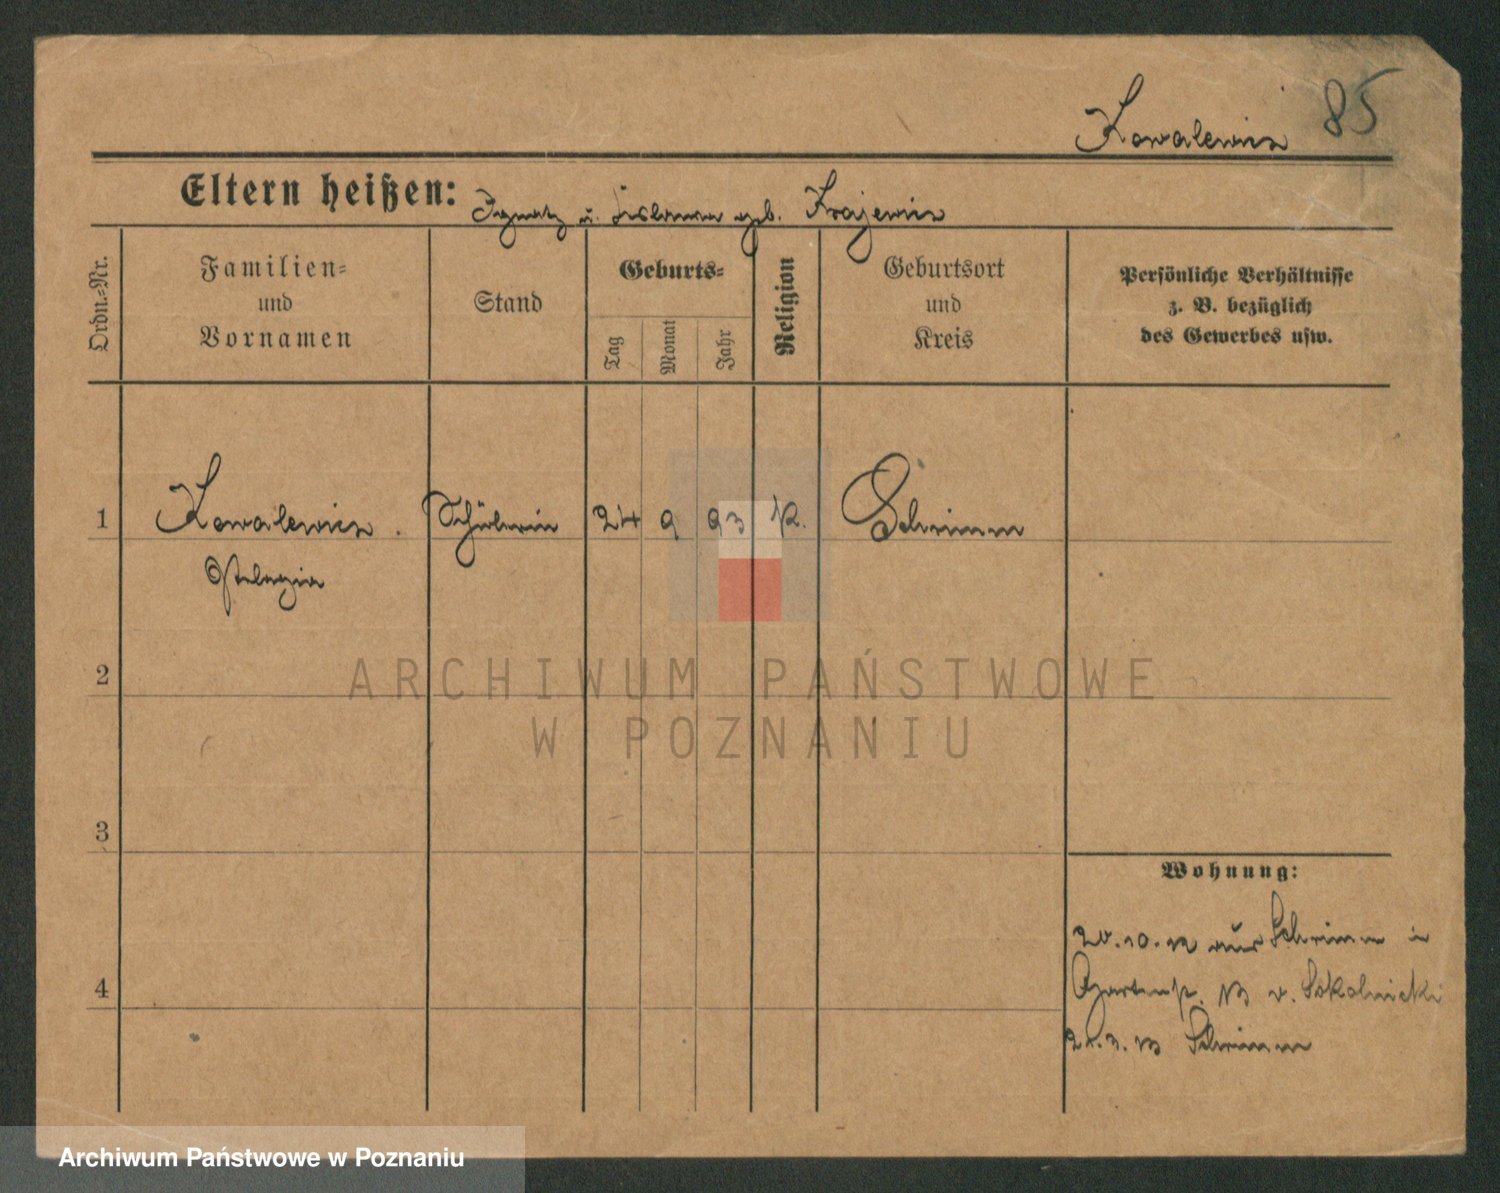 Kowalewicz 85
Eltern heißen: Ignatz u. geb. Krajewicz
Ordn.-Nr.
Familien-
und
Vornamen
Stand
Geburts-
Tag
Monat
Jahr
Religion
Geburtsort
und
Kreis
Persönliche Verhältnisse
z. B. bezüglich
des Gewerbes usw.
1 Kowalewicz. Schülerin 24 9 93 k. Schrimm
Pelagia
2
3
4
Wohnung:
20.10.12 aus Schrimm in
Gartenstr. 13 v. Skolnicki
21.3.13 Schrimm
ARCHIWUM PAŃSTWOWE
W POZNANIU
Archiwum Państwowe w Poznaniu